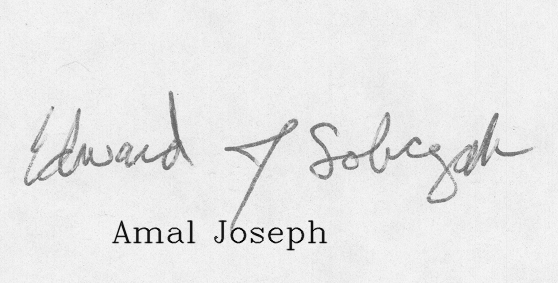 Edward J Sobczak
Amal Joseph